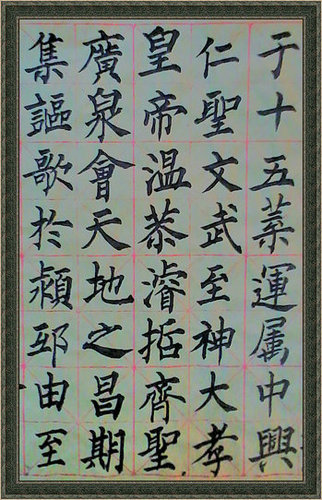 于十五葉運属中興
仁聖文武至神大孝
皇帝温恭濬哲齊聖
廣泉會天地之昌期
集謳歌於潁邸由至